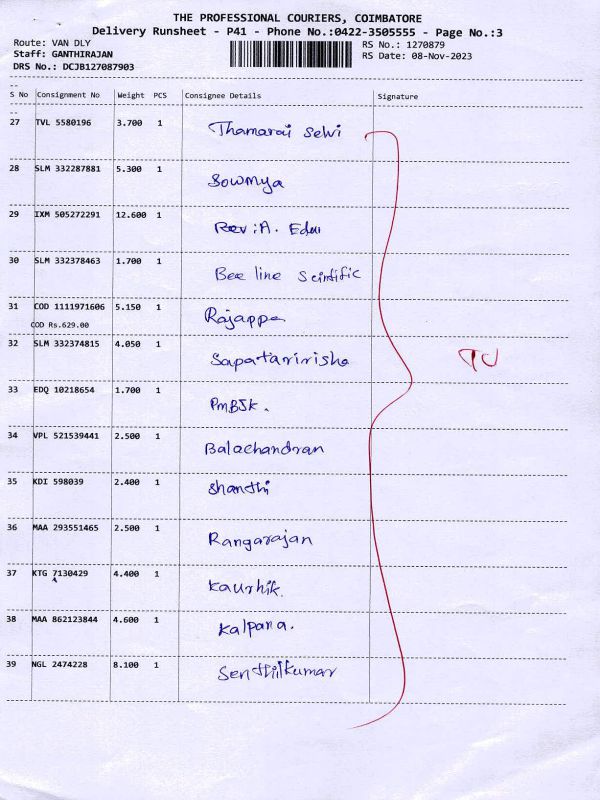 THE PROFESSIONAL COURIERS, COIMBATORE
Delivery Runsheet - P41 - Phone No.:0422-3505555 - Page No.:3
Route: VAN DLY RS No.: 1270879
Staff: GANTHIRAJAN RS Date: 08-Nov-2023
DRS No.: DCJB127087903
S No Consignment No Weight PCS Consignee Details Signature
27 TVL 5580196 3.700 1 Thamarai Selvi
28 SLM 332287881 5.300 1 Sowmya
29 IXM 505272291 12.600 1 Rev: A.
30 SLM 332378463 1.700 1 Bee line Scintific
31 COD 1111971606 5.150 1 Rajappa
COD Rs.629.00
32 SLM 332374815 4.050 1 Sapataririsha
33 EDQ 10218654 1.700 1 PMBJK.
34 VPL 521539441 2.500 1 Balachandran
35 KDI 598039 2.400 1 Shanthi
36 MAA 293551465 2.500 1 Rangarajan
37 KTG 7130429 4.400 1 Kaurhik.
38 MAA 862123844 4.600 1 Kalpana.
39 NGL 2474228 8.100 1 Senthilkumar